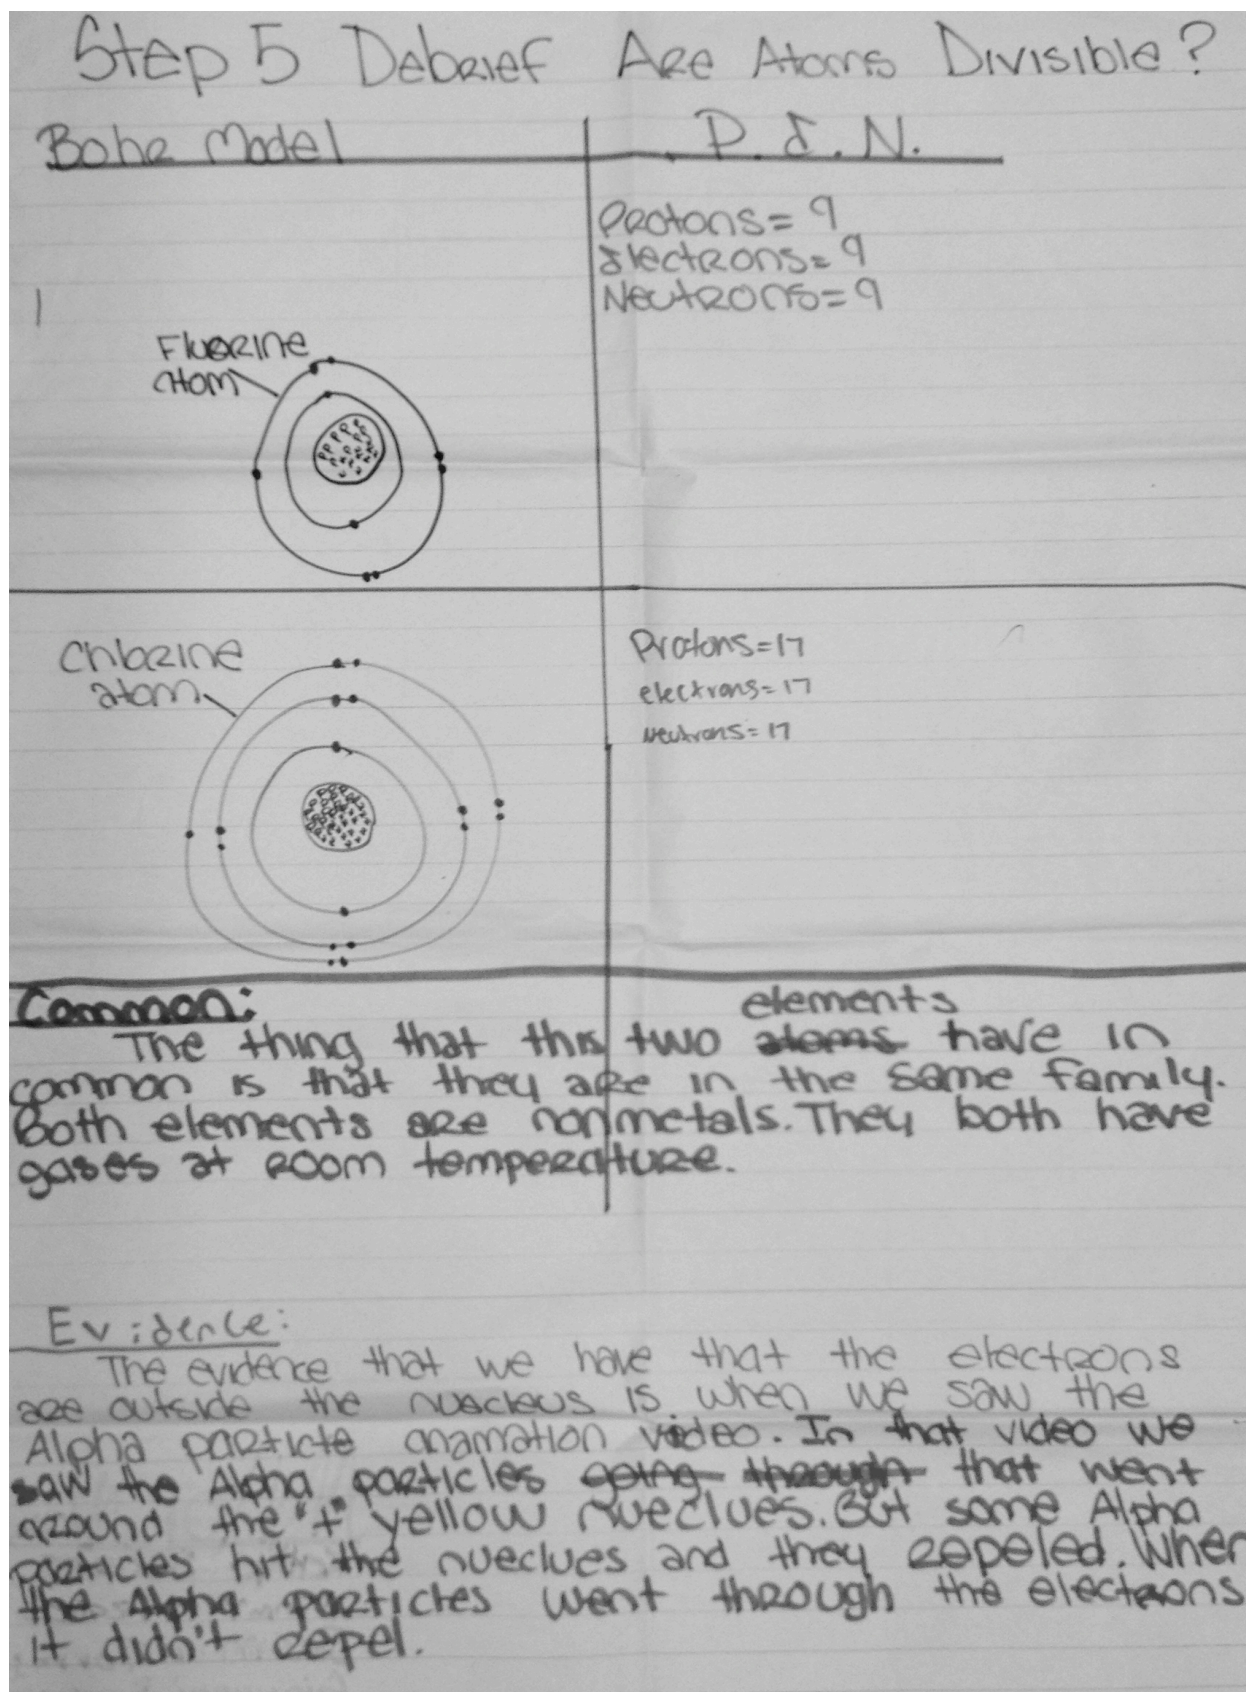 Step 5 Debrief Are Atoms Divisible?
Bohr Model
P. E. N.
Protons= 9
Electrons= 9
Neutrons= 9
1
Fluorine
atom
Chlorine
atom
Protons=17
electrons=17
Neutrons=17
Common:
elements
The thing that this two atoms have in
common is that they are in the same family.
Both elements are nonmetals. They both have
gases at room temperature.
Evidence:
The evidence that we have that the electrons
are outside the nuecleus is when we saw the
Alpha particle anamation video. In that video we
saw the Alpha particles going through that went
around the "+" yellow nueclues. But some Alpha
particles hit the nueclues and they repeled. When
the Alpha particles went through the electrons
it didn't repel.